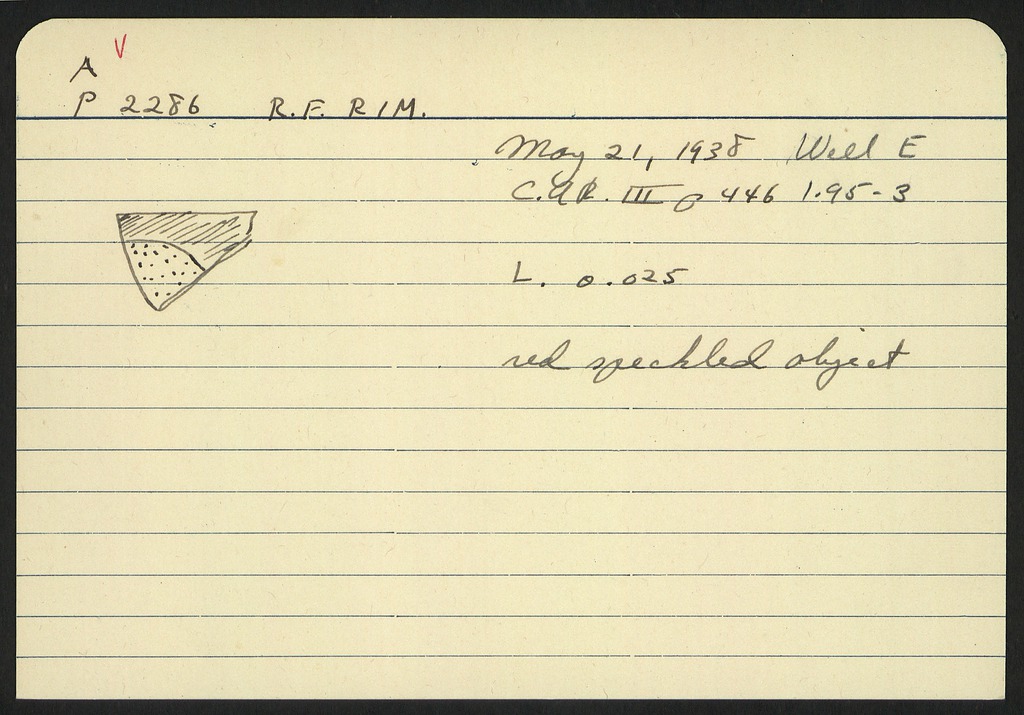 A V
P 2286 R.F. RIM.
May 21, 1938 Well E
C.AR. III p 446 1.95-3
L. 0.025
red speckled object